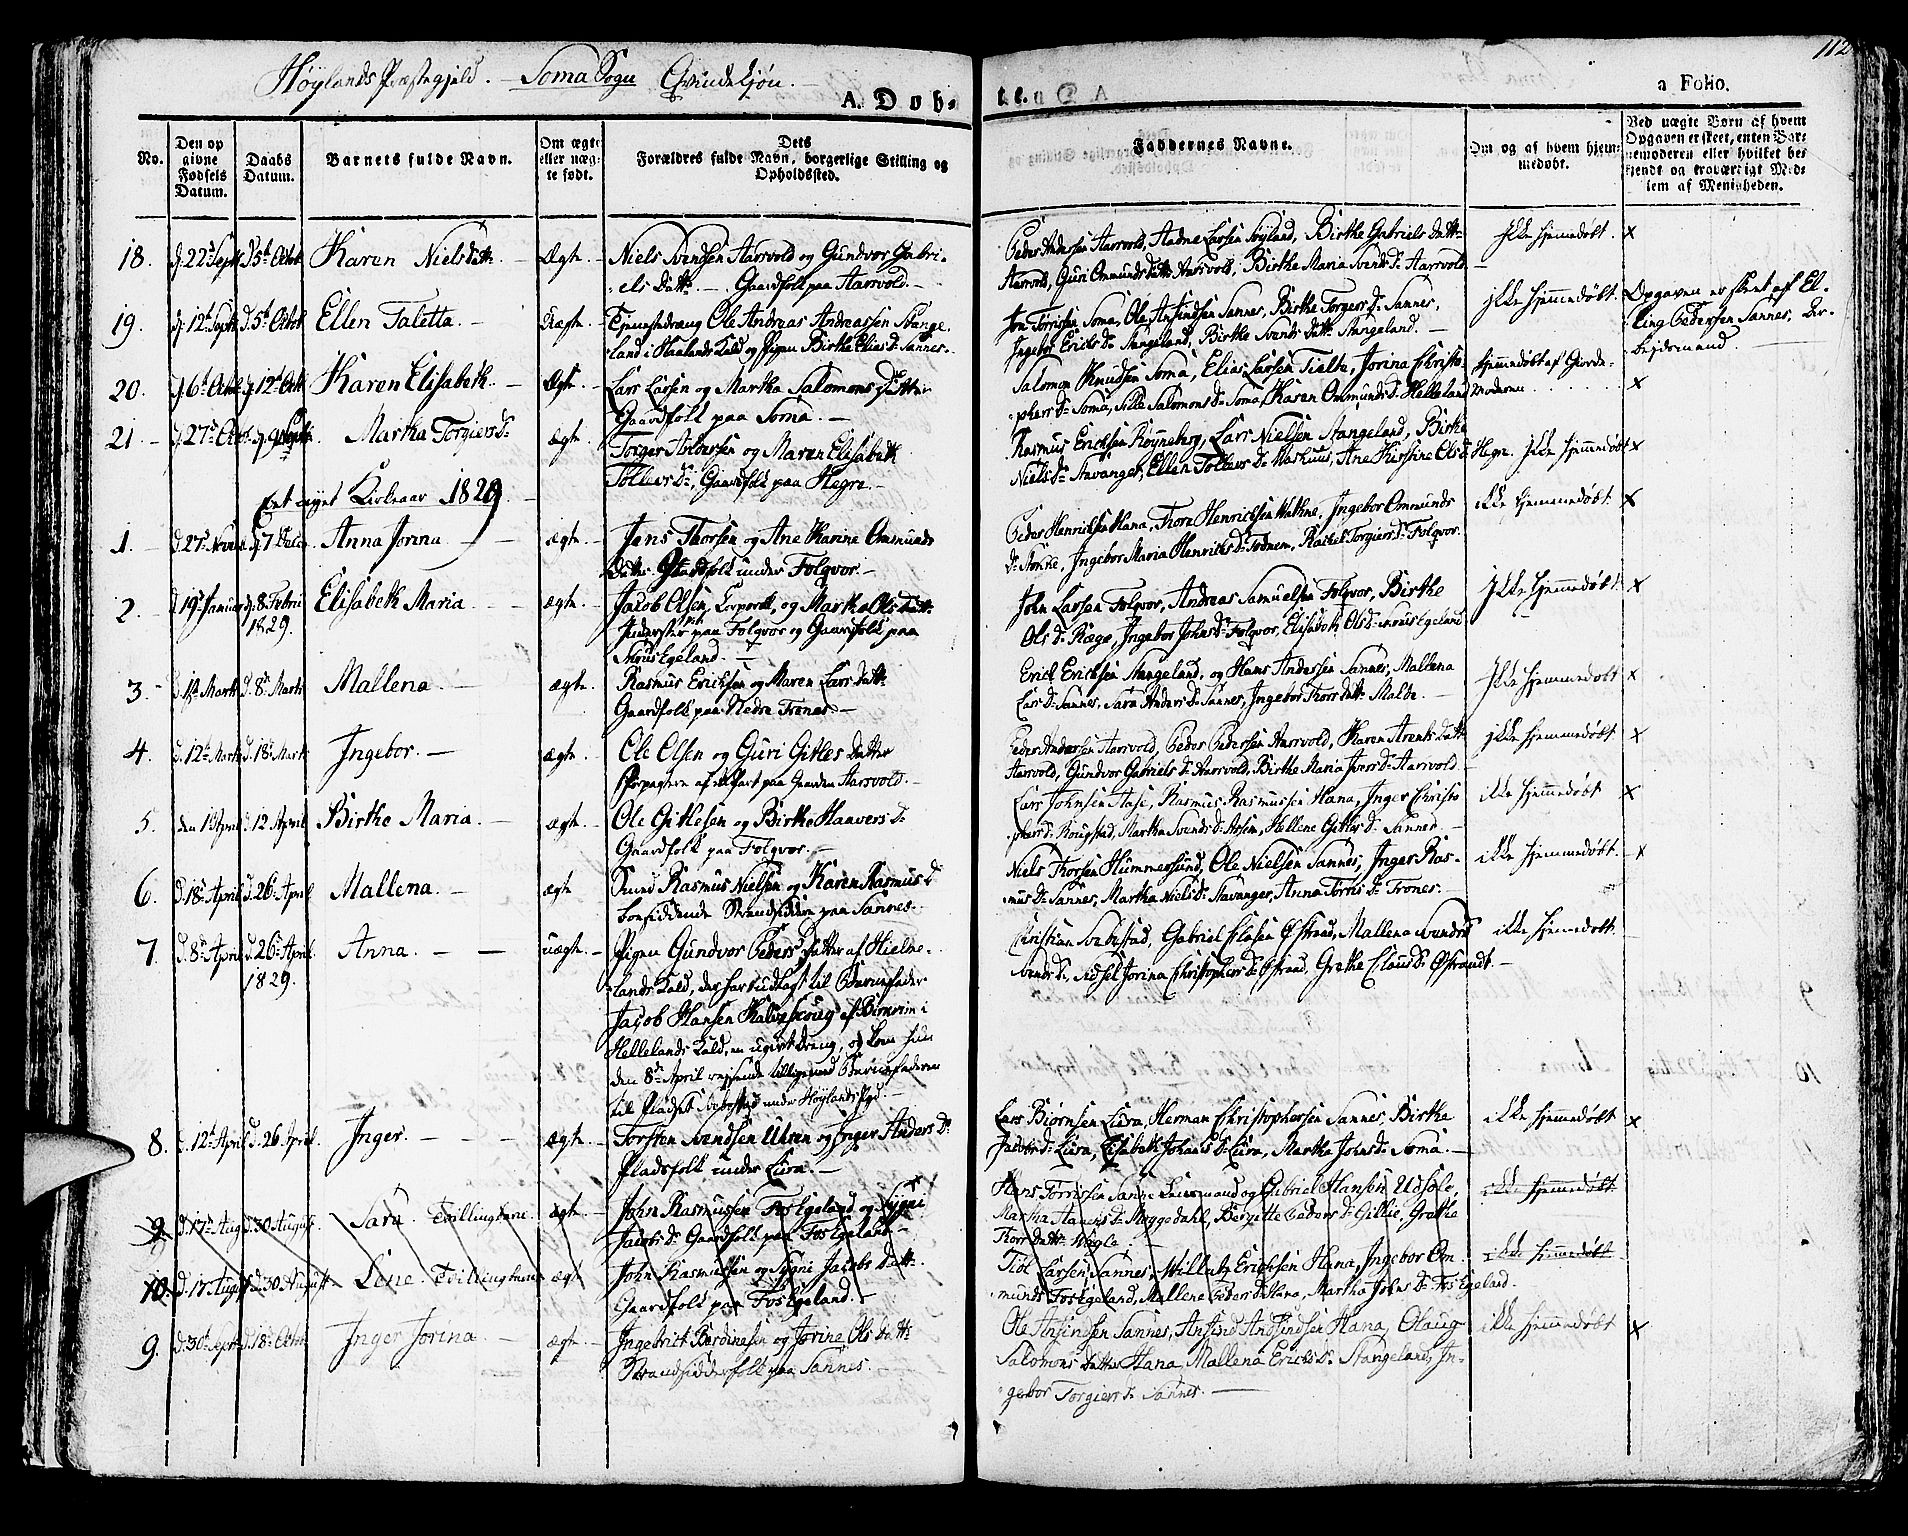 Høylands Præstegjeld. — Soma Sogn Qvindekjøn. —
112
A. Døb-
te.
a Folio.
No.
Den opgivne Fødsels Datum.
Daabs Datum.
Barnets fulde Navn.
Om ægte eller uægte født.
Dets Forældres fulde Navn, borgerlige Stilling og Opholdssted.
Faddernes Navne.
Om og af hvem hjemmedøbt.
Ved uægte Børn af hvem Opgaven er skeet, enten Barnemoderen eller hvilket bekjendt og troværdigt Medlem af Menigheden.
18. d. 22d Septb d. 5te Octob Karen Nielsdattr — Ægte Niels Svendsen Aarsvold og Gundvor Gabri-
els Dattr — Gaardfolk paa Aarsvold. —
Peder Andersen Aarsvold, Aadne Larsen Søyland, Birthe Gabriels Dattr
Aarsvold, Guri Ommunds Dattr Aarsvold, Birthe Maria Svends Dr Aarsvold
ikke hjemmedøbt. x
19. d. 12te Septb d. 5te Octob Ellen Taletta. — Uægte Tjenestedræng Ole Andreas Andreassen Stange-
land i Haalands Kald og Pigen Birthe Elias Dr Sannes.
Jon Torrisen Soma, Ole Ansindsen Sannes, Birthe Torgers Dr Sannes,
Ingebor Ericks Dr Stangeland, Birthe Svends Dattr Stangeland. —
ikke hjemmedøbt. Opgaven er skeet af El-
ling Pedersen Sannes, Ar-
bejdsmand
20. d. 6te Octob d. 12te Octb Karen Elisabeth. — Ægte Lars Larsen og Martha Salomons Datter
Gaardfolk paa Soma. —
Salomon Knudsen Soma, Elias Larsen Tielte, Jorina Christo-
phers Dr Soma, Sille Salomons Dr Soma, Karen Ommunds Dr Helleland
hjemmedøbt af Giorde-
moderen x
21. d. 27de Octb Martha Torgiers Dr ægte Torger Anderssen og Maren Elisabeth
Tollevs Dr, Gaardfolk paa Hegre. —
Rasmus Ericksen Røyneberg, Lars Nielsen Stangeland, Birthe
Niels Dr Stavanger, Ellen Tollevs Dr, Ane Kirstine Ols Dr Hegre. ikke hjemmedøbt x
Et nyt Kirkeaar 1829. —
1. d. 27de Novb d. 7 Decb Anna Jorina — ægte. Jens Thorsen og Ane Karine Ommunds
Datter Gaardfolk under Folqvor. —
Peder Henricksen Hana, Thore Henricksen, Ingebor Ommunds
Ingebor Maria Henricks Dr, Rachel Torgiers Dr Folqvor.
ikke hjemmedøbt x
2. d. 19de Januar d. 8 Febri 1829. Elisabeth Maria — ægte. Jacob Olsen, Corporal, og Martha Ols Dattr
Inderster paa Folqvor og Gaardfolk paa
Skeius Egeland. —
John Larsen Folqvor, Andreas Samuelsen Folqvor, Birthe
Ols Dr Rage, Ingebor Johns Dr Folqvor, Elisabeth Ols Dr Egeland
ikke hjemmedøbt x
3. Marts d. 8de Marts Mallena. — ægte. Rasmus Ericksen og Maren Lars Dattr
Gaardfolk paa Nedre Trones. —
Erick Ericksen Stangeland, og Hans Andersen Sannes, Mallena
Lars Dr Sannes, Sara Anders Dr Sannes, Ingebor Thors Dattr Malde. —
ikke hjemmedøbt x
4. d. 12te Marts d. 18de Marts Ingebor. — ægte. Ole Olsen og Guri Gitles Datter
Forpagtere af en Part paa Gaarden Aarsvold. —
Peder Andersen Aarsvold, Peder Pedersen Aarsvold, Karen Arents Dattr
Aarsvold, Gundvor Gabriels Dr Aarsvold, Birthe Maria Ivers Dr Aarsvold
ikke hjemmedøbt x
5. den 1 April d. 12 April Birthe Maria. — ægte. Ole Gitlesen og Birthe Haavers Dr
Gaardfolk paa Folqvor. —
Lars Johnsen Aase, Rasmus Rasmussen Hana, Inger Christo-
phers Dr Rougstad, Martha Svends Dr, Hellene Gitles Dr Sannes. —
ikke hjemmedøbt x
6. d. 18de April d. 26. April Mallena. — ægte Smed Rasmus Nielsen og Karen Rasmus Dr
boesiddende Strandsidder paa Sannes. —
Niels Thorsen Hummersund, Ole Nielsen Sannes, Inger Ras-
mus Dr Sannes, Martha Niels Dr Stavanger, Anna Torris Dr Trones. —
ikke hjemmedøbt. x
7. d. 8de April d. 26de April 1829. Anna. — — uægte — Pigen Gundvor Peders Datter af Hielme-
lands Kald, der har udlagt til Barnefader
Jacob Hansen af Birkrem i
Hellelands Kald, en ugivt Dreng, og kom hun
den 8de April reisende tilligemed Barnefaderen
til Pladset Svebestad under Høylands Pgd. —
Christian Svebestad, Gabriel Olasen Østraad, Mallena Svends
Sidsel Jorina Christophers Dr Østraad, Grethe Claus Dr Østraadt. —
ikke hjemmedøbt.
8. d. 12te April d. 26. April. Inger. — — — ægte Torsten Svendsen Uhren og Inger Anders Dr
Pladsfolk under Lura. —
Lars Biørnsen Lura, Herman Christophersen Sannes, Birthe
Jacobs Dr Lura, Elisabeth Johans Dr Lura, Martha Johns Dr Soma. —
ikke hjemmedøbt x
9. d. 17de Aug d. 30 August Sara Tvillingerne. ægte John Rasmussen Fos Egeland og Sygni
Jacobs Dr Gaardfolk paa Fos Egeland —
Hans Torrisen Sannes Lensmand og Gabriel Hansen Udsole,
Martha Hans Dr Høggedahl, Bergitte Peders Dr Gillie, Grethe
Thors Dattr Wigle.
ikke hjemmedøbt
10. d. 17 August d. 30 August Lene. Tvillingerne ægt John Rasmussen og Sygni Jacobs Dattr
Gaardfolk paa Fos Egeland. —
Larsen Sannes, Willatz Ericksen Hana, Ingebor Om-
munds Fos Egeland, Mallene Peders Dr Hana, Martha Johns Dr Fos Egeland.
ikke hjemmedøbt
9. d. 30de Septb d. 18de Octob Inger Jorina — ægte — Ingebrict Berdinesen og Jorine Ols Dattr
Strandsidderfolk paa Sannes. —
Ole Ansindsen Sannes, Ansind Andsindsen Hana, Olaug
Salomons Datter Hana, Mallena Ericks Dr Stangeland, In-
gebor Torgiers Dr Sannes. —
ikke hjemmedøbt x